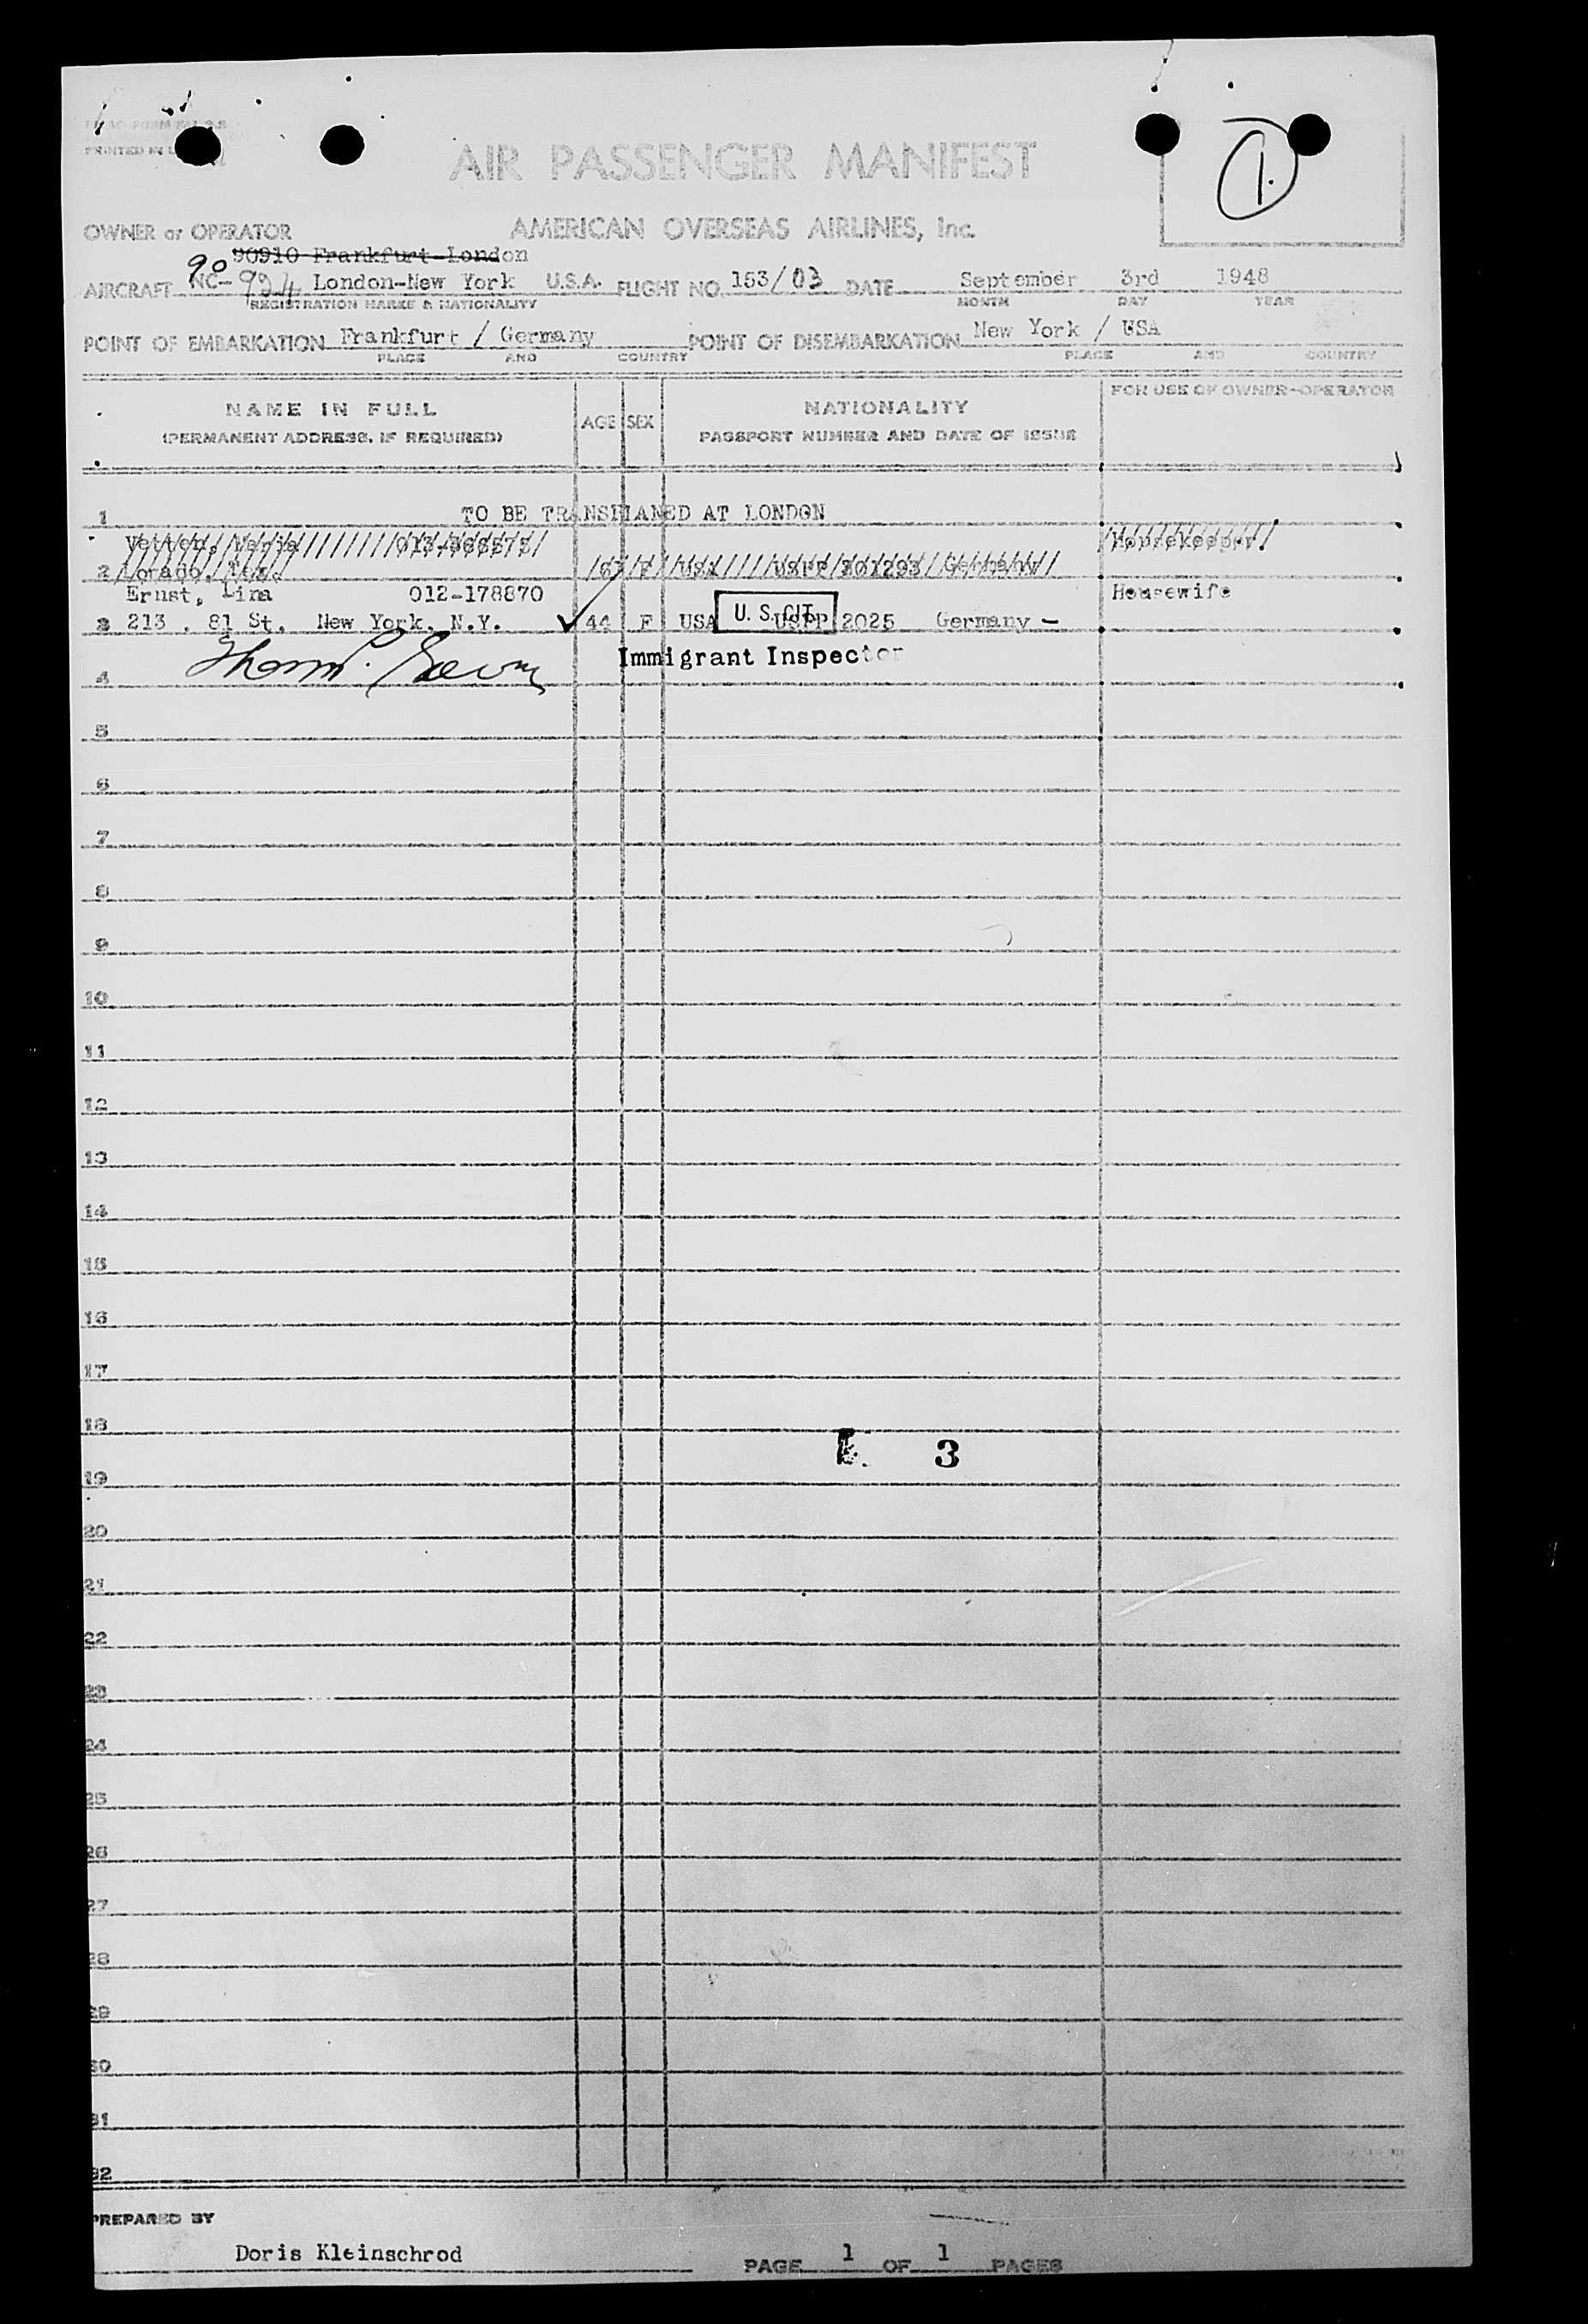 PRINTED IN
1.
AIR PASSENGER MANIFEST
OWNER or OPERATOR AMERICAN OVERSEAS AIRLINES, Inc.
90910 Frankfurt-London
AIRCRAFT NC-90924 London-New York U.S.A. FLIGHT NO. 153/03 DATE September 3rd 1948
REGISTRATION MARKS & NATIONALITY MONTH DAY YEAR
POINT OF EMBARKATION Frankfurt / Germany POINT OF DISEMBARKATION New York / USA
PLACE AND COUNTRY PLACE AND COUNTRY
NAME IN FULL AGE SEX NATIONALITY FOR USE OF OWNER-OPERATOR
(PERMANENT ADDRESS, IF REQUIRED) PASSPORT NUMBER AND DATE OF ISSUE
1 TO BE TRANSPLANED AT LONDON
Housekeeper
2 Tex. F USA USPP Germany
Ernst, Lina 012-178870 Housewife
3 213 . 81 St. New York, N.Y. 44 F USA USPP 2025 Germany -
U. S. CIT.
Immigrant Inspector
4
5
6
7
8
9
10
11
12
13
14
15
16
17
18
3
19
20
21
22
23
24
25
26
27
28
29
30
31
32
PREPARED BY
Doris Kleinschrod
PAGE 1 OF 1 PAGES